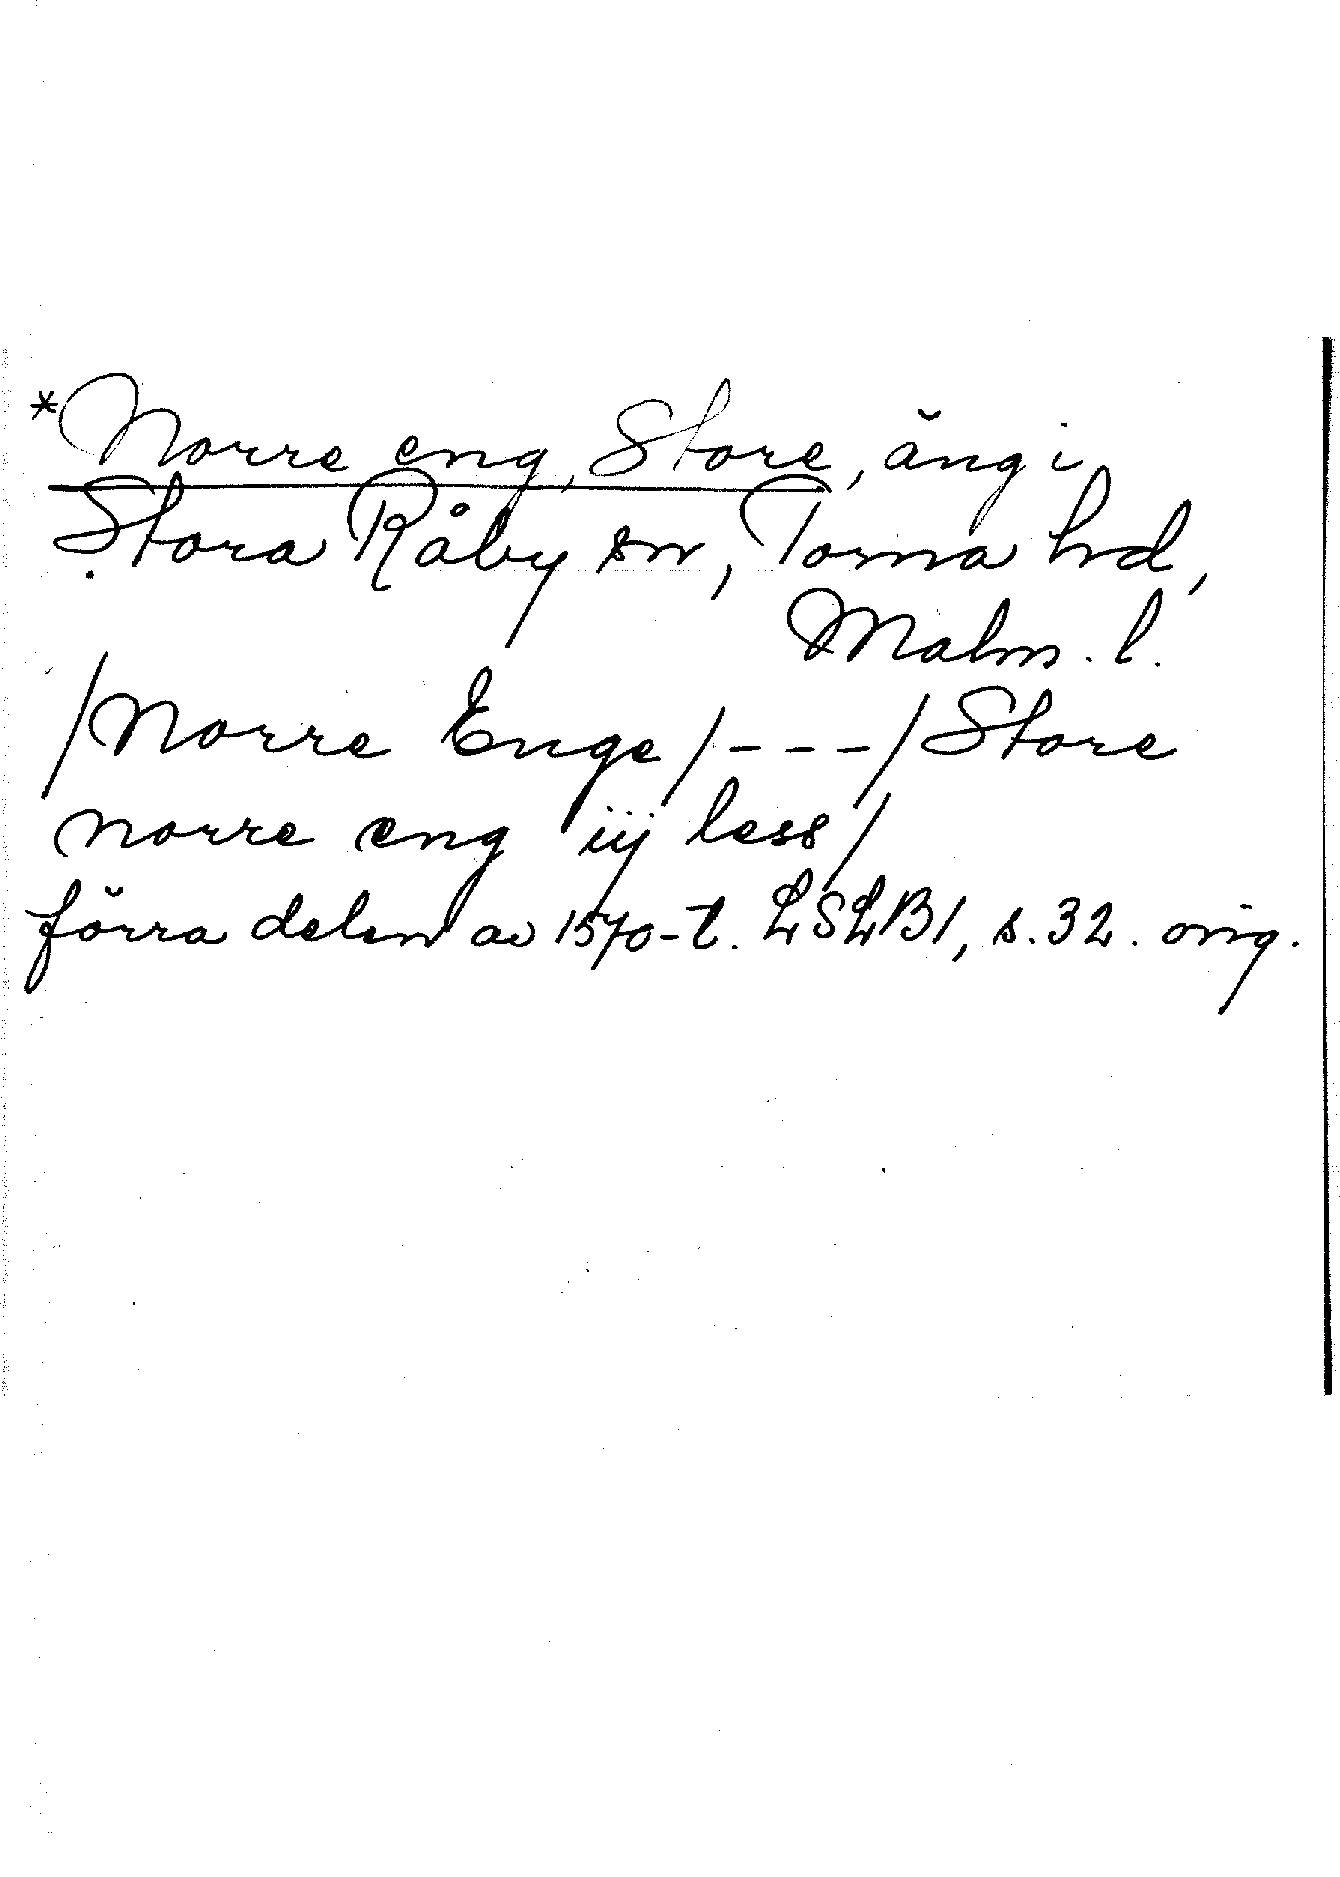 *Norre eng, Store, äng i
Stora Råby sn, Torna hd,
Malm. l.
/Norre Enge/ - - - /Store
norre eng iij less/
förra delen av 1570-t. LSLB1, s. 32. orig.